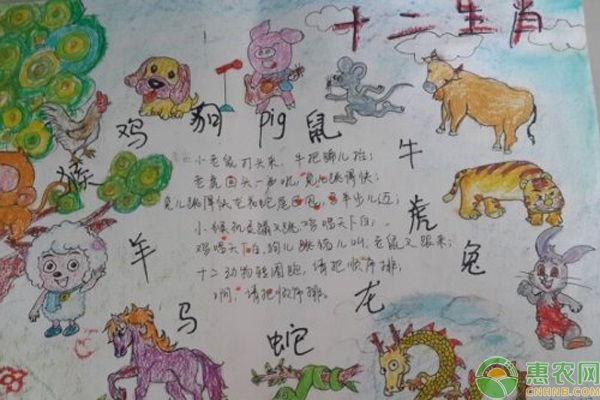 十二生肖
鸡
狗
pig
鼠
猴
牛
小老鼠打头来，牛把蹄儿抬；
老虎回头一声吼，兔儿跳得快；
兔儿跳得快龙和蛇尾 羊出儿迈；
虎
小猴机灵蹦又跳，鸡唱天下白，
羊
鸡唱天下白，狗儿跳 儿叫，老鼠又跟来；
兔
十二动物转圈跑，请把顺序排，
啊，请把顺序排。
龙
马
蛇
惠农网
CNHNB.COM